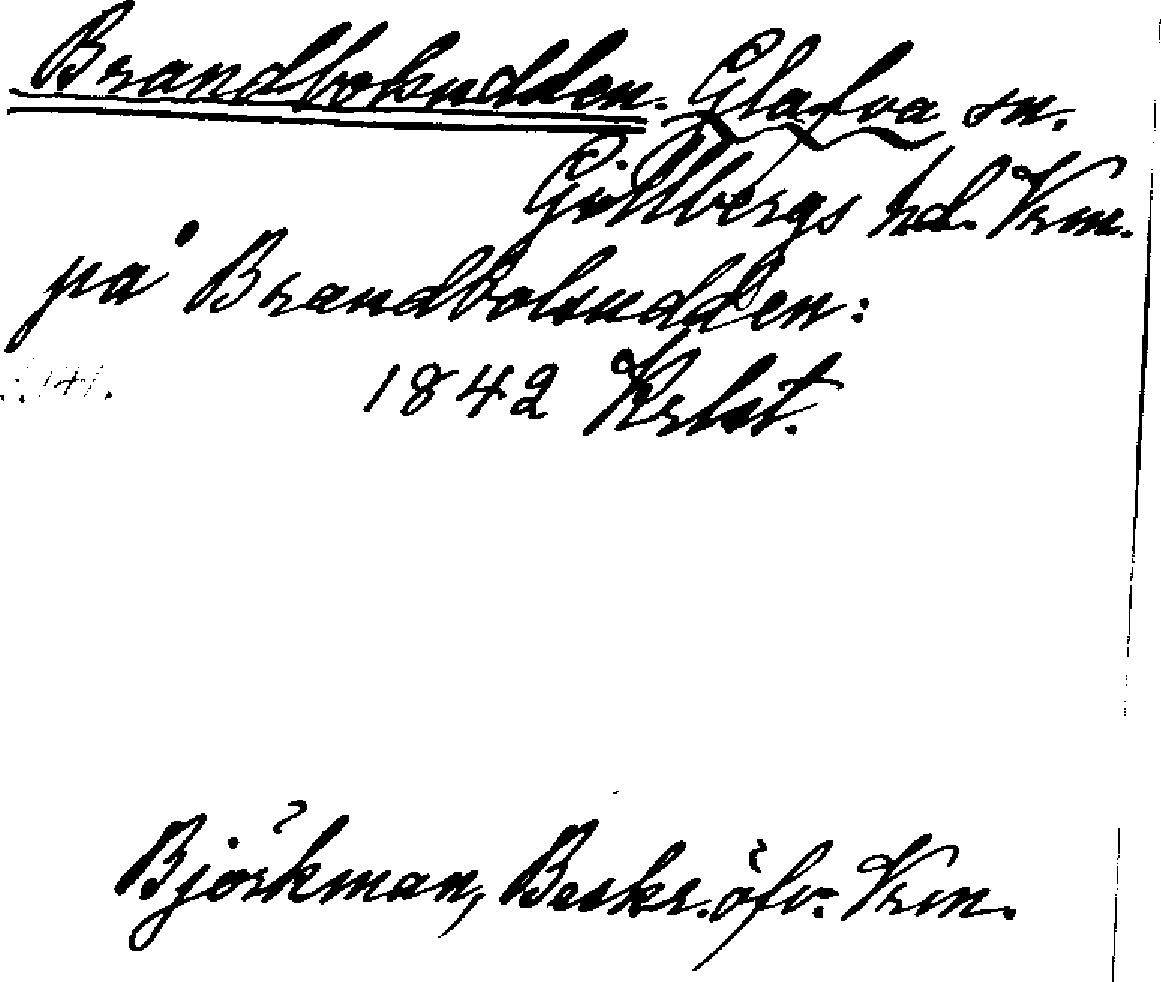 Brandbolsudden. Glafva sn.
Gillbergs hd. Vrm.
på Brandbolsudden:
1842 Krlst.
Björkman, Beskr. öfv. Vrm.